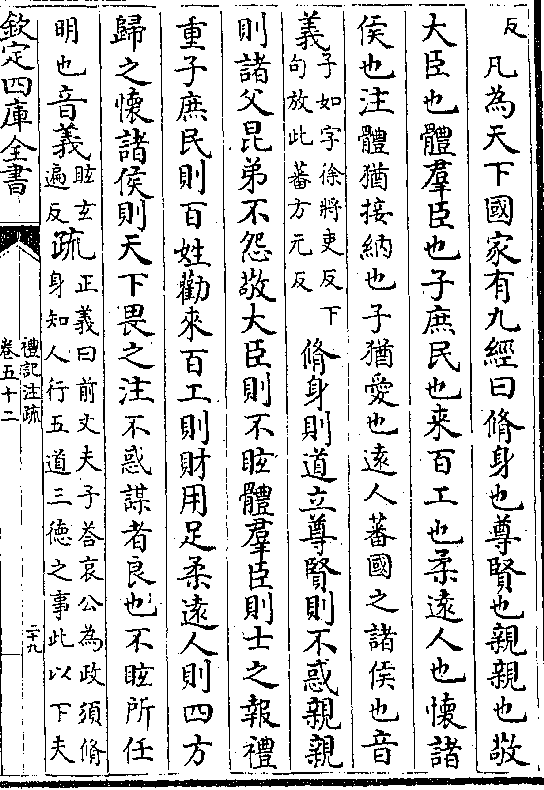 反
凡為天下國家有九經曰脩身也尊賢也親親也敬
大臣也體羣臣也子庶民也来百工也柔遠人也懷諸
侯也注體猶接納也子猶愛也遠人蕃國之諸侯也音
義子如字徐將吏反下句放此蕃方元反
脩身則道立尊賢則不惑親親
則諸父昆弟不怨敬大臣則不眩體羣臣則士之報禮
重子庶民則百姓勸來百工則財用足柔遠人則四方
歸之懷諸侯則天下畏之注不惑謀者良也不眩所任
明也音義眩玄遍反疏正義曰前文夫子答哀公為政須脩身知人行五道三德之事此以下夫
欽定四庫全書
禮記注疏
卷五十二
二十九